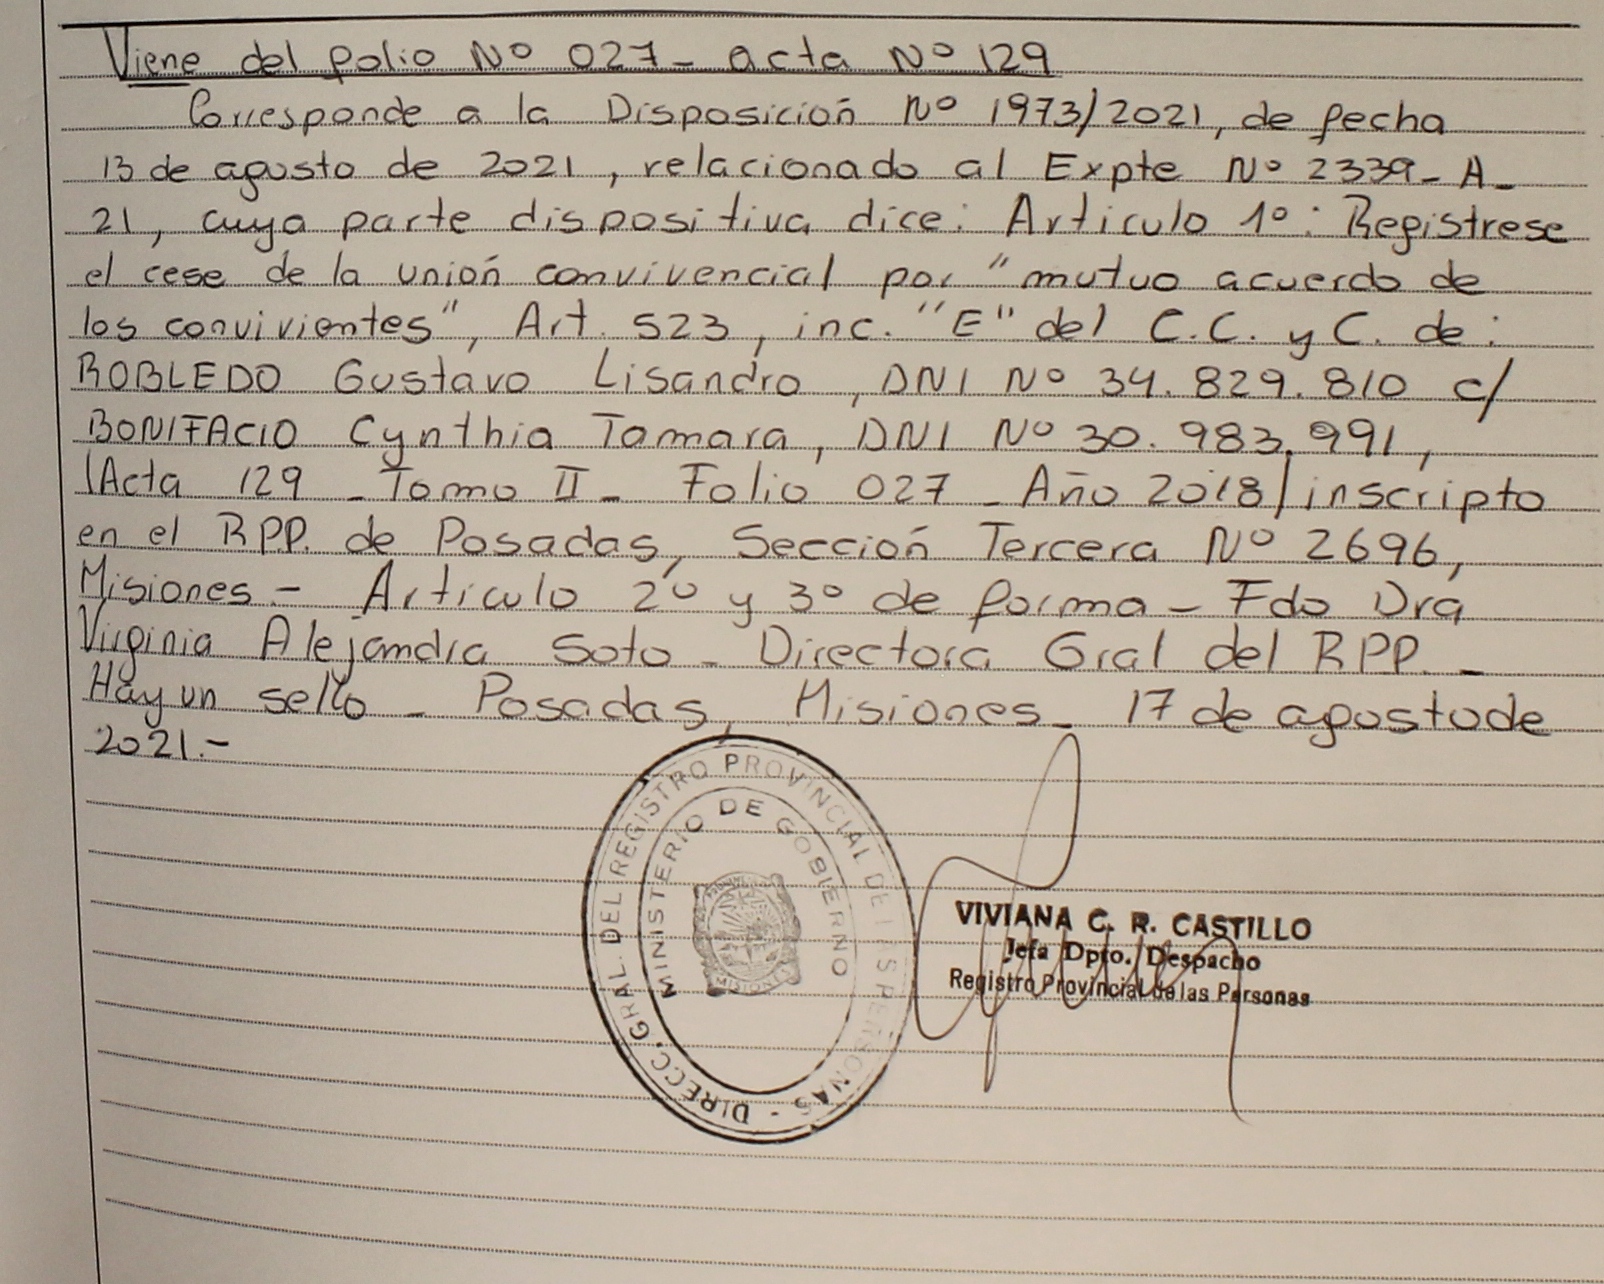 Viene del folio Nº 027 - acta Nº 129
Corresponde a la Disposición Nº 1973/2021, de fecha
13 de agosto de 2021, relacionado al Expte Nº 2339-A-
21, cuya parte dispositiva dice: Articulo 1º: Registrese
el cese de la unión convivencial por "mutuo acuerdo de
los convivientes", Art. 523, inc. "E" del C.C. y C. de:
ROBLEDO Gustavo Lisandro, DNI Nº 34.829.810 c/
BONIFACIO Cynthia Tamara, DNI Nº 30.983.991,
/Acta 129 - Tomo II - Folio 027 - Año 2018/ inscripto
en el R.P.P. de Posadas, Sección Tercera Nº 2696,
Misiones.- Articulo 2º y 3º de forma - Fdo Dra
Virginia Alejandra Soto - Directora Gral del RPP. -
Hay un sello - Posadas, Misiones - 17 de agosto de
2021.-
DIRECC. GRAL. DEL REGISTRO PROVINCIAL DE LAS PERSONAS -
MINISTERIO DE GOBIERNO
MISIONES
VIVIANA C. R. CASTILLO
Jefa Dpto. Despacho
Registro Provincial de las Personas